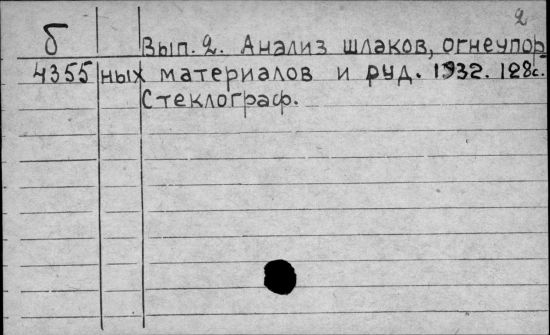 2
б Вып. 2. Анализ шлаков, огнеупор
4355 ных материалов и руд. 1932. 128с.
Стеклограф.